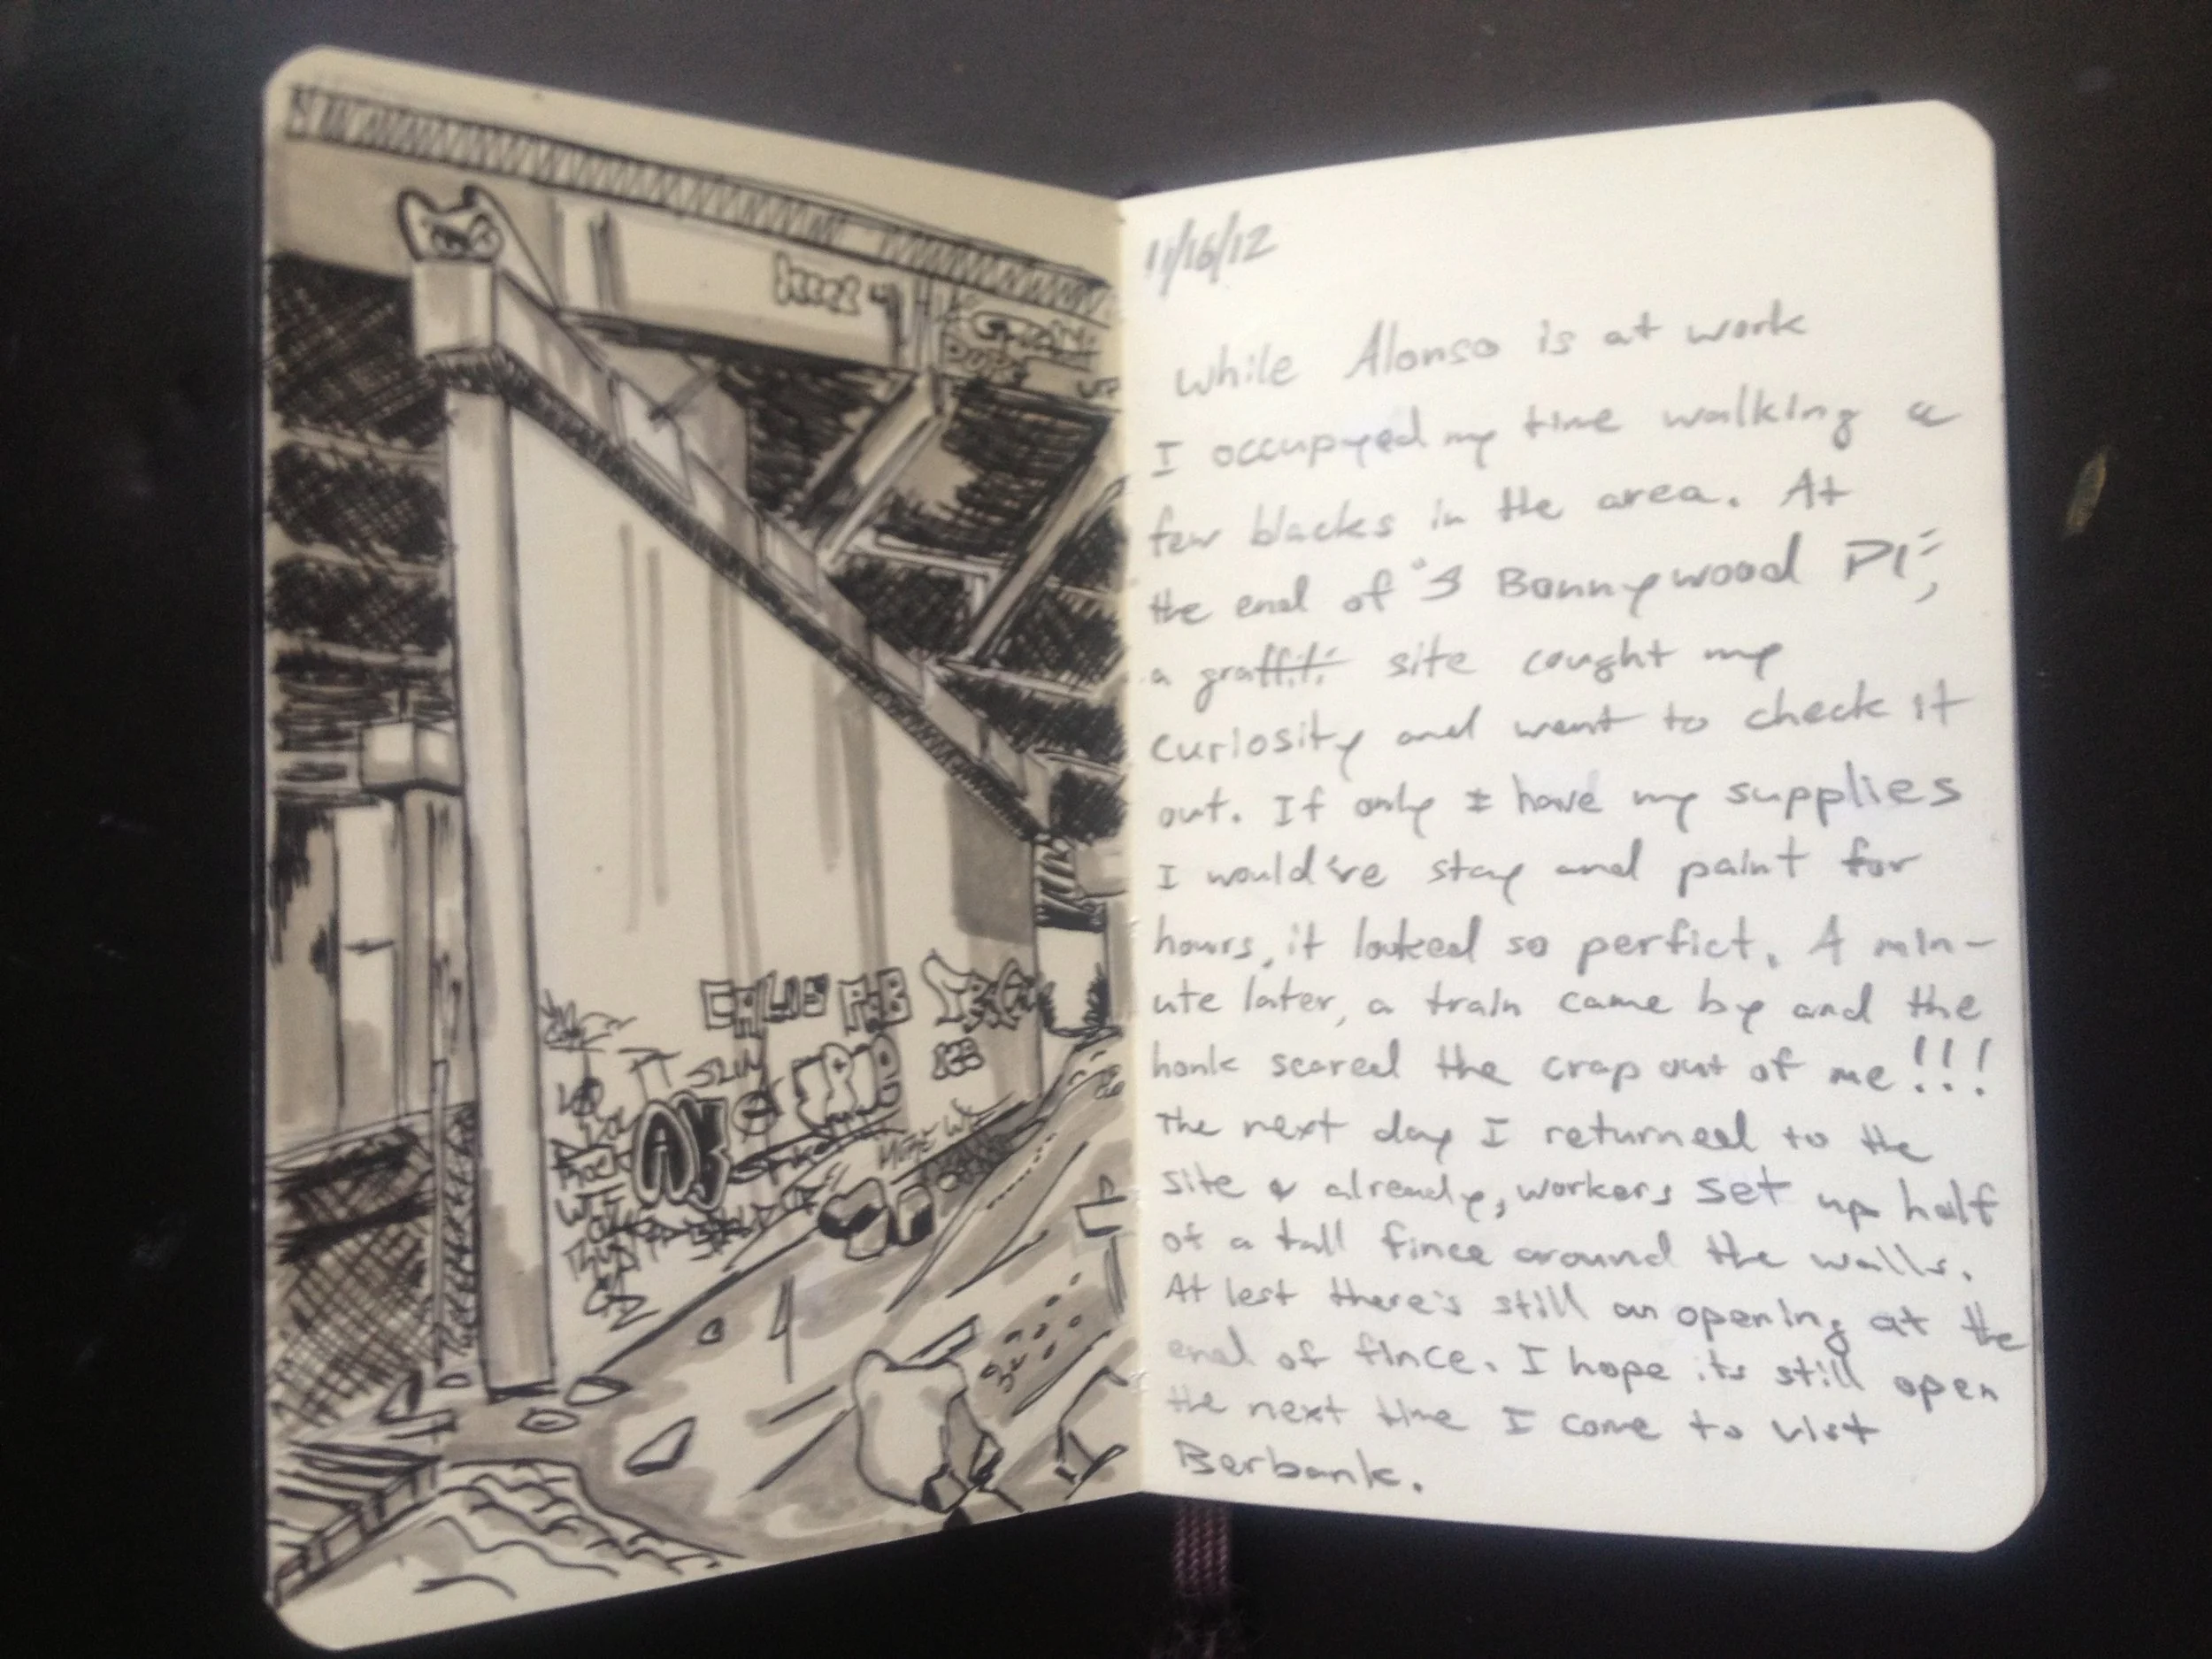 SLIM
11/16/12
while Alonso is at work
I occupyed my time walking a
few blacks in the area. At
the end of "S Bonnywood Pl",
a graffiti site cought my
curiosity and went to check it
out. If only I have my supplies
I would've stay and paint for
hours, it looked so perfict. A min-
ute later, a train came by and the
honk scared the crap out of me!!!
The next day I returned to the
site & already, workers set up half
of a tall fince around the walls.
At lest there's still an opening at the
end of fince. I hope its still open
the next time I come to vist
Berbank.